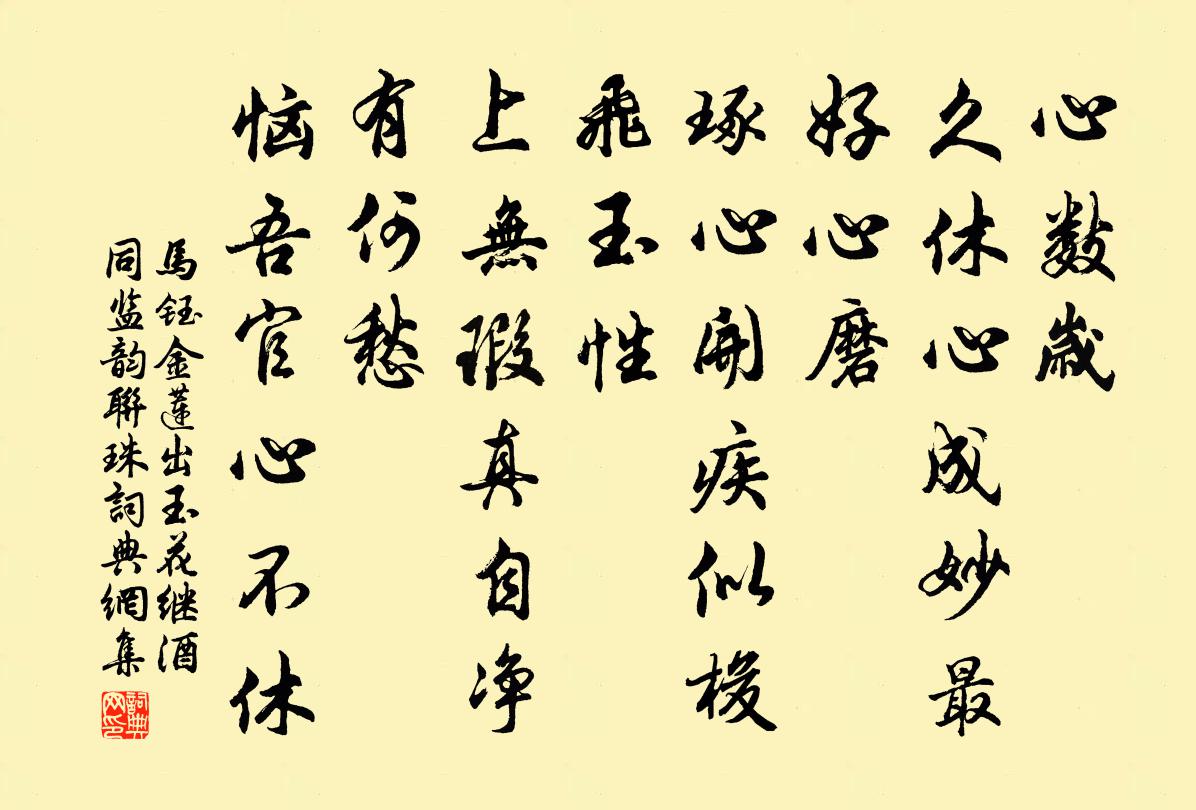 心数歲
久休心成妙最
好心磨
琢心開疾似梭
飛玉性
上無瑕真自净
有何愁
恼吾官心不休
馬钰金蓮出玉花继酒
同监韵聯珠詞典網集
詞典
网印